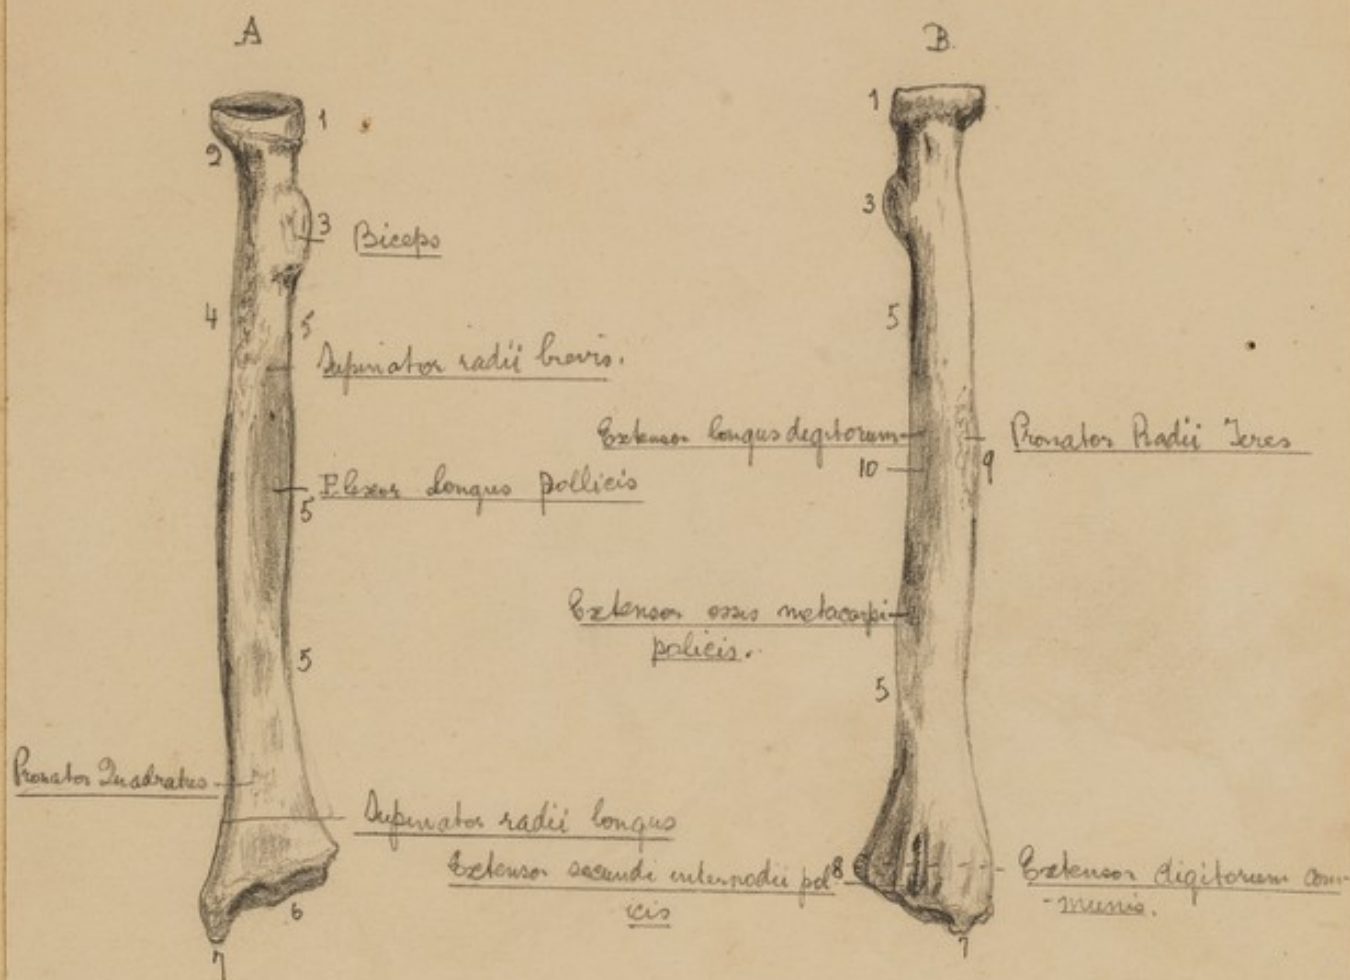 A
B.
1
2
3
Biceps
4
5
Supinator radii brevis.
Flexor Longus Pollicis
5
5
Pronator Quadratus
Supinator radii longus
6
7
1
3
5
Extensor longus degitorum
10
Pronator Radii Teres
9
Extensor ossis metacarpi
policis.
5
Extensor secundi internodii pol
icis
8
Extensor digitorum com-
-munis.
7